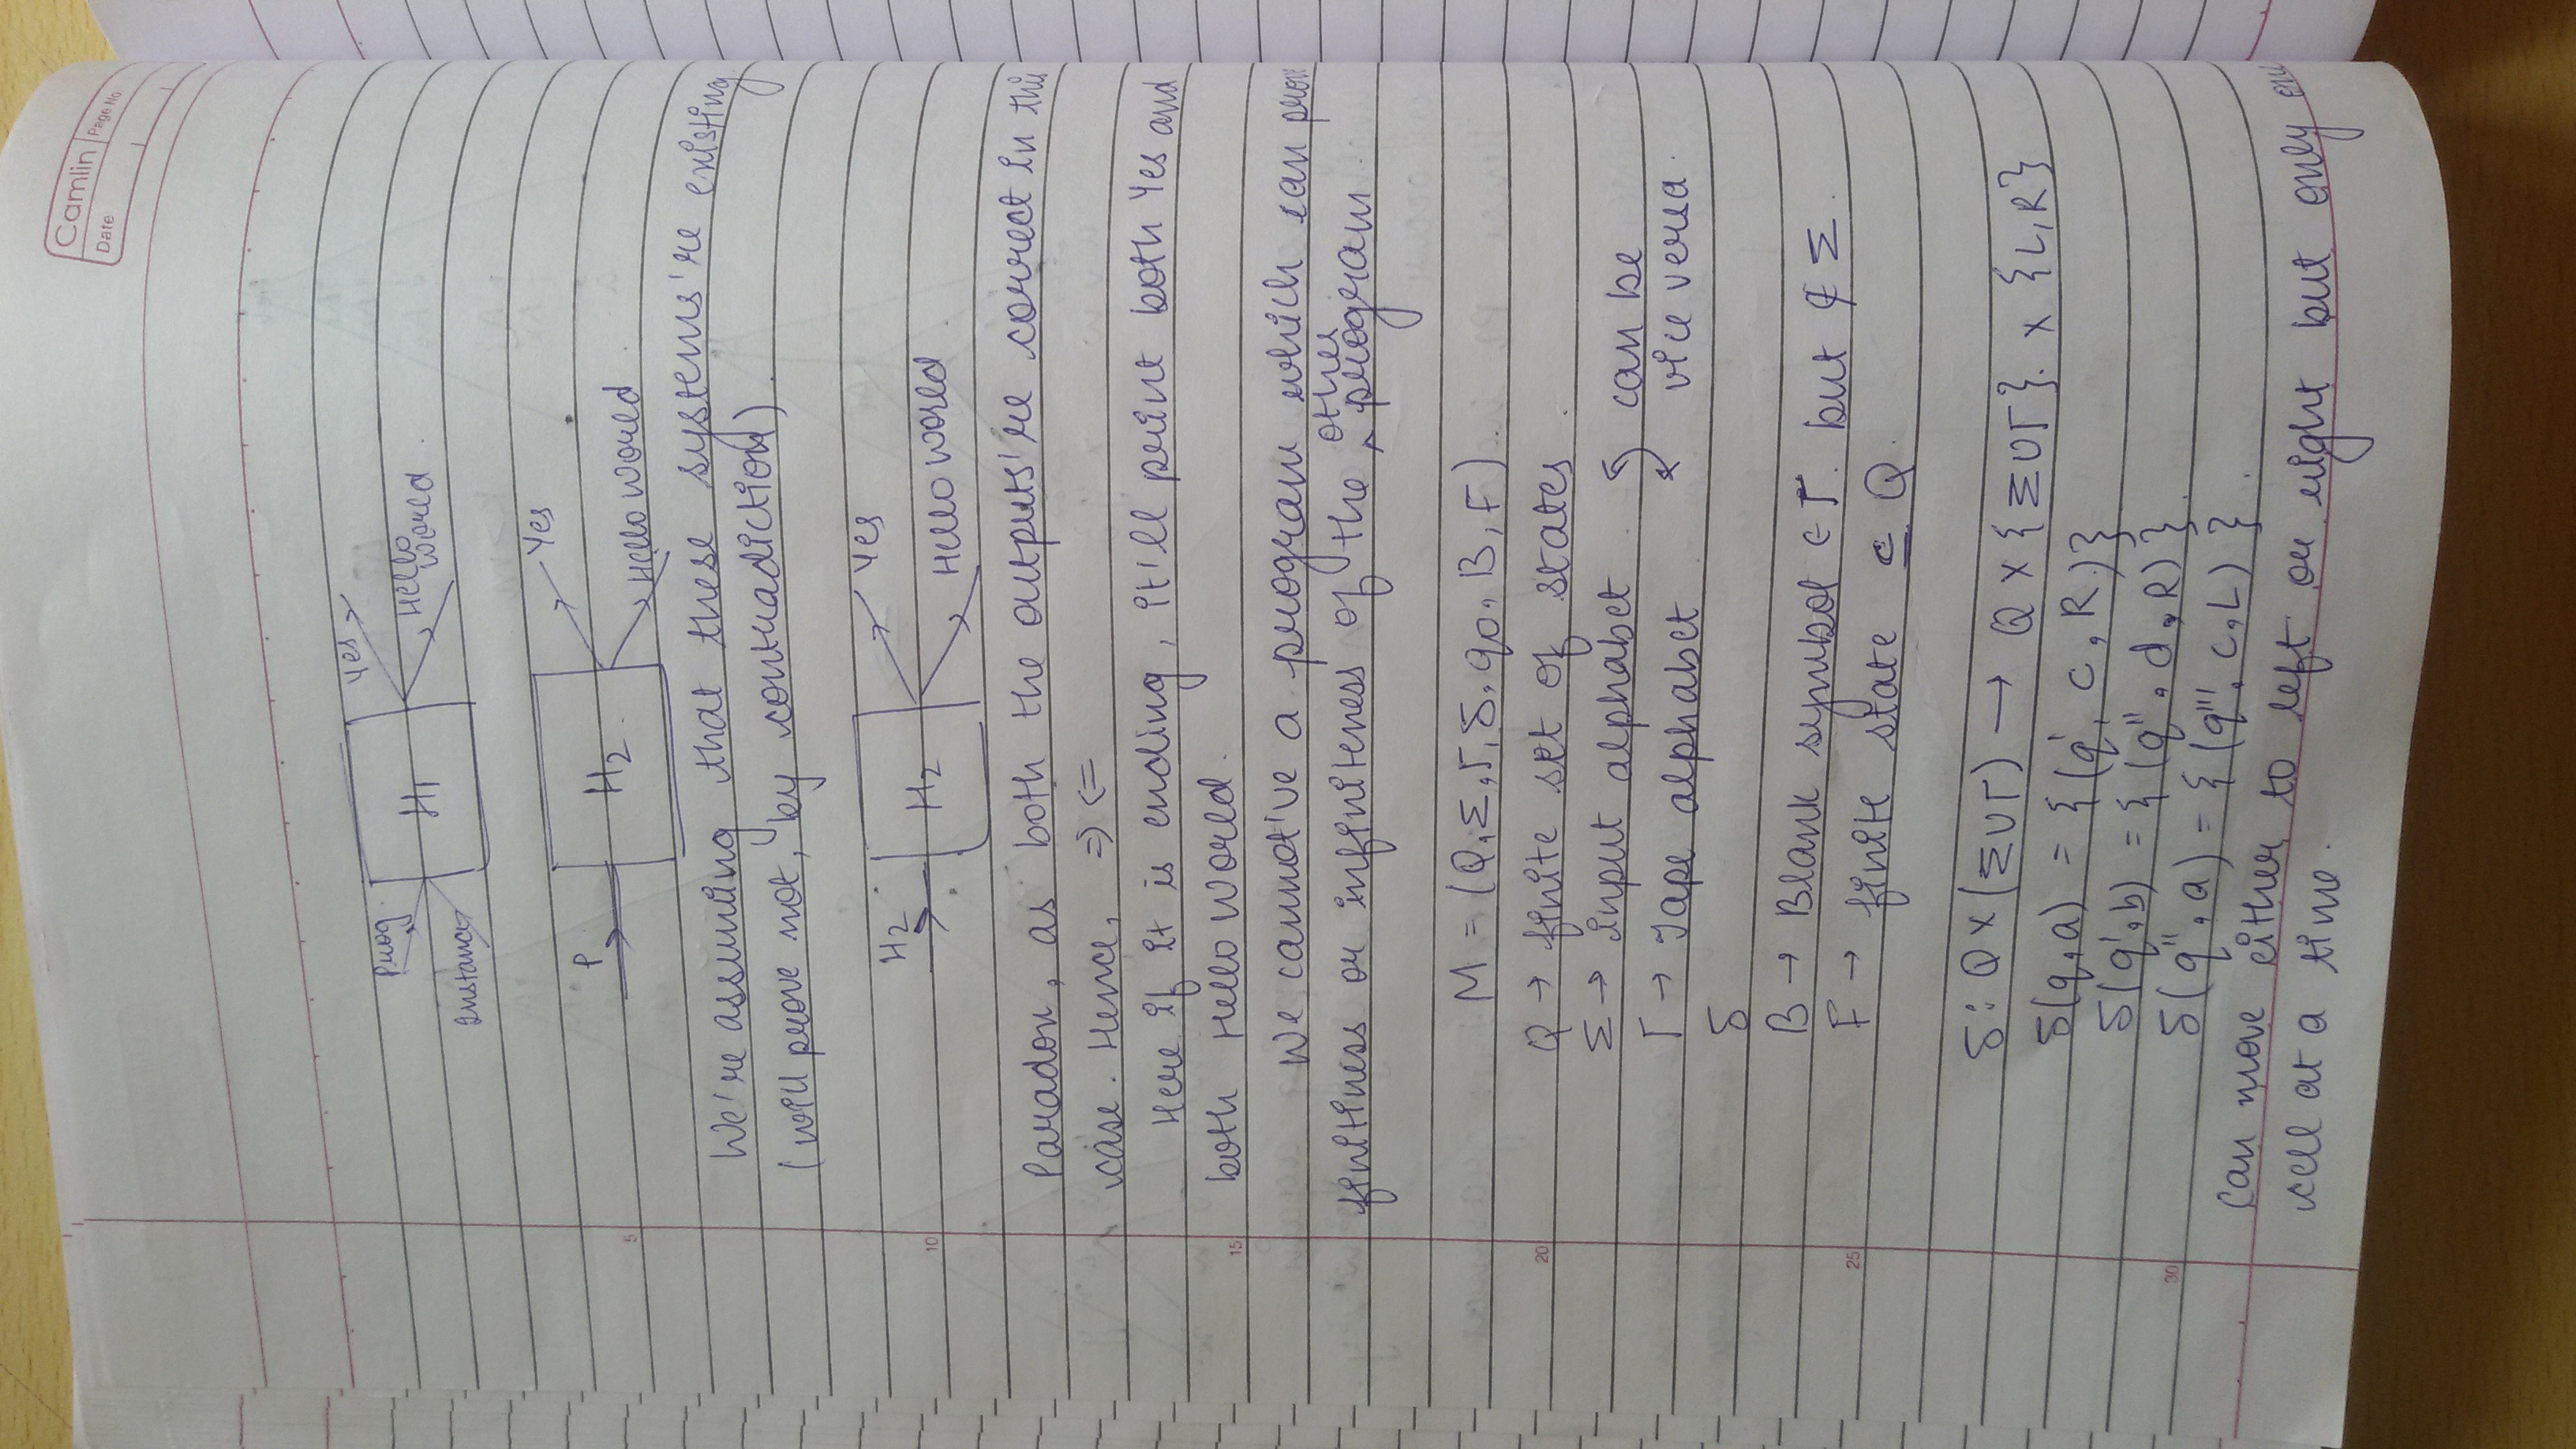 Camlin
Page No.
Date
Prog.
Instance
H1
Yes
Hello
World
P
H2
Yes
Hello World
5
We're assuming that these systems're existing
(will prove not, by contradiction).
H2
H2
Yes
Hello World
10
Paradox, as both the outputs're correct in this
case. Hence, ⇒⇐
Here if it is ending, it'll print both Yes and
both Hello World.
15
We cannot've a program which can prove
finitiness or infiniteness of the other program.
M = (Q, Σ, Γ, δ, q0, B, F).
Q → finite set of states.
20
Σ → input alphabet
can be
Γ → Tape alphabet
vice versa.
δ
B → Blank symbol ∈ Γ. but ∉ Σ.
25
F → finite state ⊆ Q.
δ: Q × (Σ∪Γ) → Q × {Σ∪Γ}. × {L, R}
δ(q, a) = {(q', c, R)}
δ(q', b) = {(q'', d, R)}.
30
δ(q'', a) = {(q''', c, L)}.
can move either to left or right but only one
cell at a time.